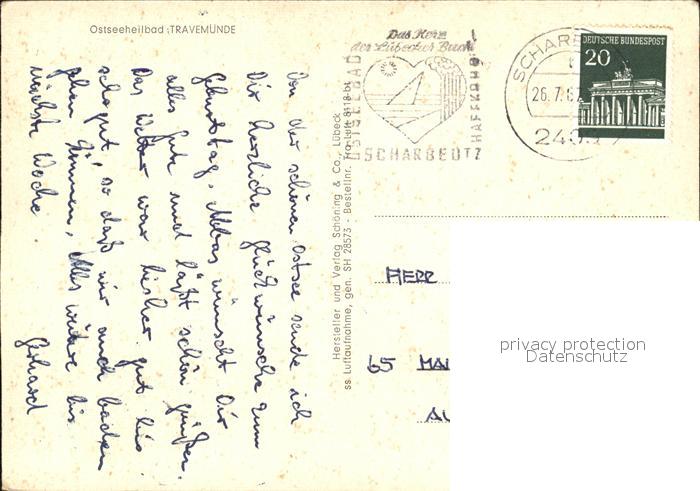 Ostseeheilbad TRAVEMÜNDE
Von der schönen Ostsee sende ich
Dir herzliche Glückwünsche zum
Geburtstag. Alles wünscht Dir
alles Gute und läßt schön grüßen.
Das Wetter war bisher gut bis
sehr gut, so daß wir auch baden
gehen können. Alles weitere bis
nächste Woche
Gerhard
Hersteller und Verlag Schöning & Co., Lübeck
ss. Luftaufnahme, gen. SH 28573 - Bestellnr. Tra Luft 8118 bt
Das Herz
der Lübecker Bucht
OSTSEEBAD
HAFFKRUG
SCHARBEUTZ
SCHARB
26.7.67
2409
DEUTSCHE BUNDESPOST
20
HERR
65 MAI
privacy protection
Datenschutz